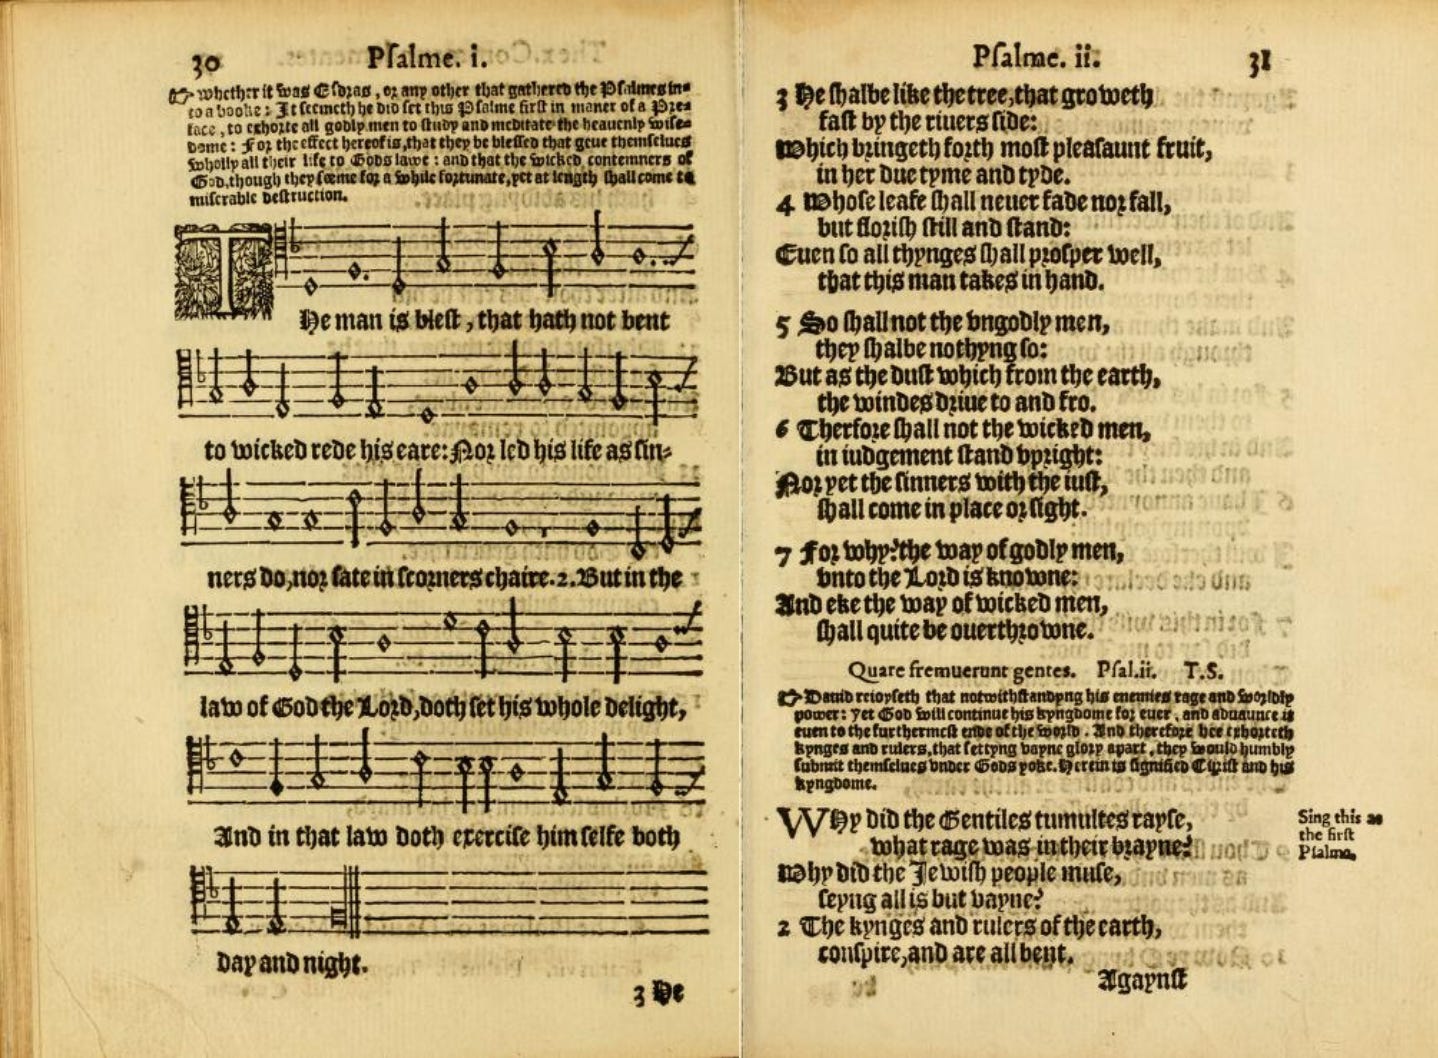 30 Psalme. i.
☞ Whether it was Esdras, or any other that gathered the Psalmes in-
to a booke: It seemeth he did set this Psalme first in maner of a Pre-
face, to exhorte all godly men to study and meditate the heauenly wise-
dome: For the effect hereof is, that they be blessed that geue themselues
wholly all their life to Gods lawe: and that the wicked contemners of
God, though they seeme for a while fortunate, yet at length shall come to
miserable destruction.
THe man is blest, that hath not bent
to wicked rede his eare: Nor led his life as sin-
ners do, nor sate in scorners chaire. 2. But in the
law of God the Lord, doth set his whole delight,
And in that law doth exercise himselfe both
day and night.
3 He
Psalme. ii. 31
3 He shalbe like the tree, that groweth
fast by the riuers side:
Which bringeth forth most pleasaunt fruit,
in her due tyme and tyde.
4 Whose leafe shall neuer fade nor fall,
but florish still and stand:
Euen so all thynges shall prosper well,
that this man takes in hand.
5 So shall not the vngodly men,
they shalbe nothyng so:
But as the dust which from the earth,
the windes driue to and fro.
6 Therfore shall not the wicked men,
in iudgement stand vpright:
Nor yet the sinners with the iust,
shall come in place or sight.
7 For why? the way of godly men,
vnto the Lord is knowne:
And eke the way of wicked men,
shall quite be ouerthrowne.
Quare fremuerunt gentes. Psal.ii. T.S.
☞ Dauid reioyseth that notwithstandyng his enemies rage and worldly
power: yet God will continue his kyngdome for euer, and aduaunce it
euen to the furthermest ende of the world. And therefore hee exhorteth
kynges and rulers, that settyng vayne glory apart, they would humbly
submit themselues vnder Gods yoke. Herein is signified Christ and his
kyngdome.
WHy did the Gentiles tumultes rayse,
what rage was in their brayne?
Why did the Jewish people muse,
seyng all is but vayne?
2 The kynges and rulers of the earth,
conspire, and are all bent.
Agaynst
Sing this as
the first
Psalme.